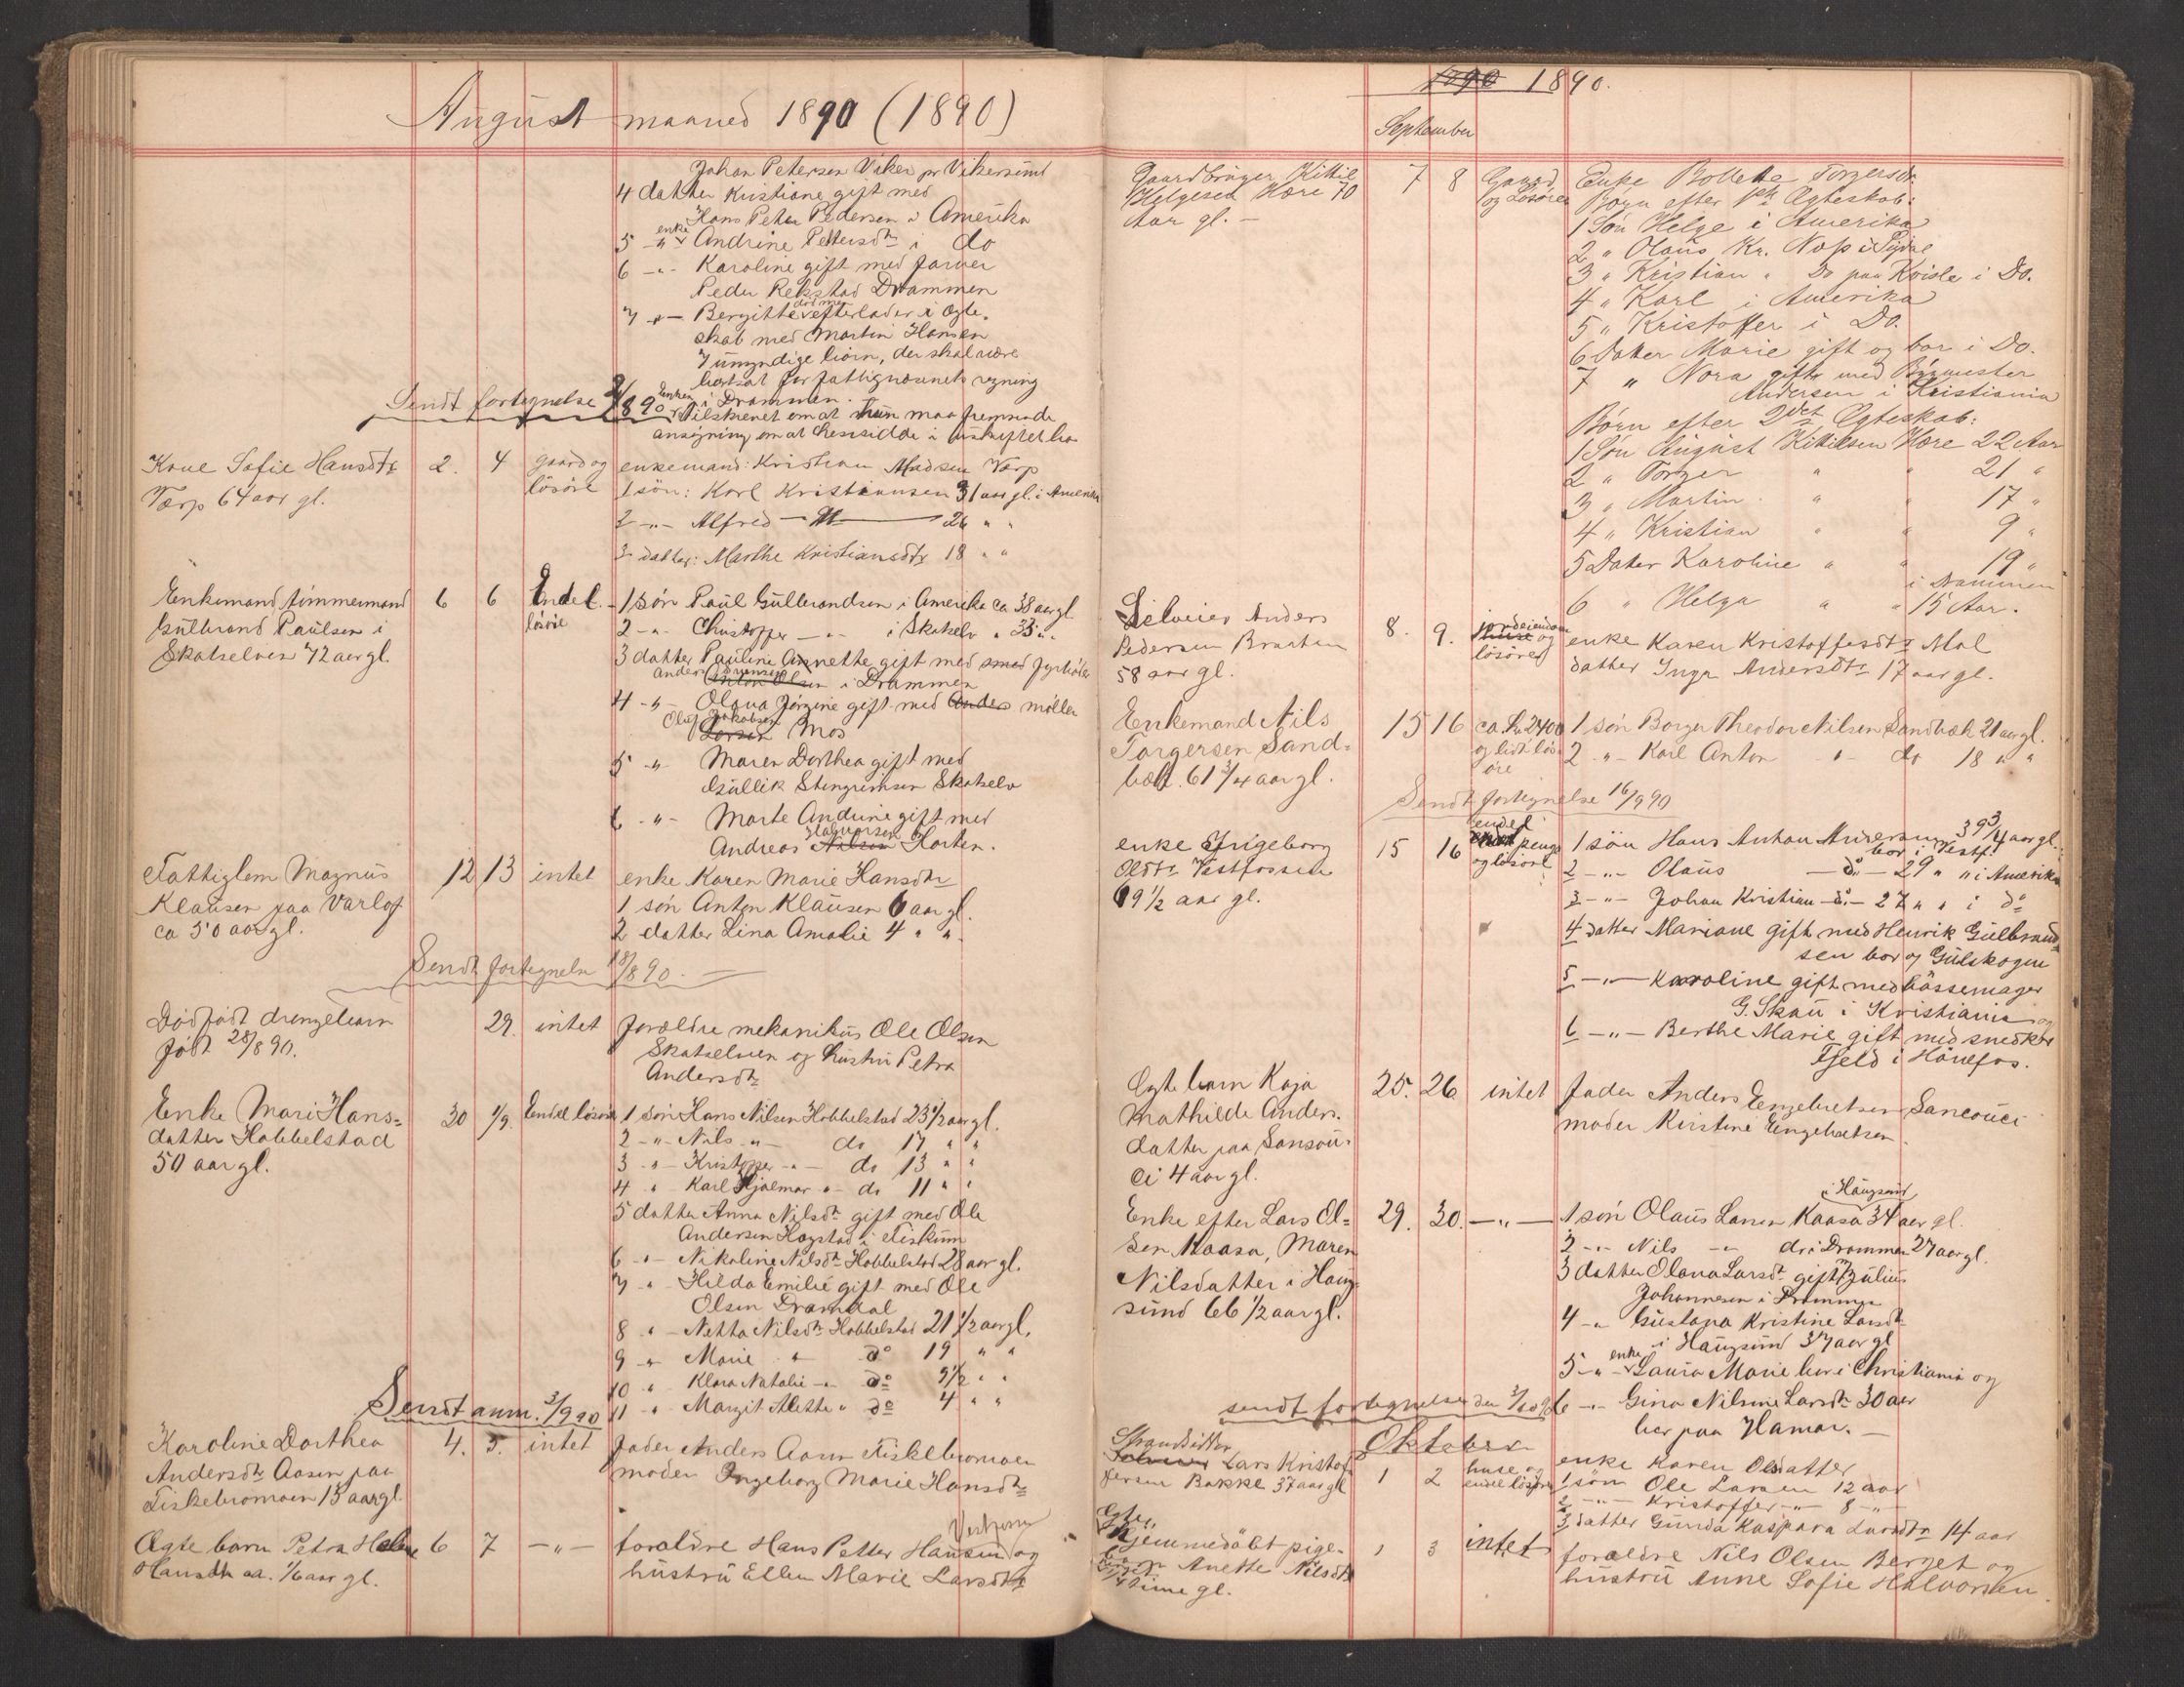 August maaned 1890 (1890)
Johan Petersen Viker pr Vikersund
4 datter Kristiane gift med
Hans Peter Pedersen i Amerika
enke
5 -"- Andrine Pettersdtr i do
6 -"- Karoline gift med farver
Peder Rekstad Drammen
død men
7 -"- Bergitte efterlader i ægte-
skab med Martin Hansen
7 umyndige børn, der skal være
bortsat for fattigvæsenets regning
i Drammen.
Sendt fortegnelse 2/8 90
Enken
tilskrevet om at hun maa fremsende
ansøgning om at hensidde i uskiftet bo
Kone Sofie Hansdtr 2. 4 gaard og enkemand: Kristian Madsen Torp
Torp 64 aar gl. løsøre 1 søn: Karl Kristiansen 31 aar gl. i Amerika
2 -"- Alfred -"- 26 " "
3 datter: Marthe Kristiansdtr 18 " "
Enkemand tømmermand 6 6 Endel 1 søn Paul Gulbrandsen i Amerika ca 38 aar gl
Gulbrand Paulsen i løsøre 2 -"- Christoffer -"- i Skotselv " 35 " "
Skotselven 72 aar gl. 3 datter Pauline Annette gift med smed fyrbøder
Anders Sørensen
Anton Olsen i Drammen
4 -"- Olava Jørgine gift med Anders møller
Oluf Jakobsen
Larsen Mos
5 -"- Maren Dorthea gift med
Gullik Stengrimsen Skotselv
6 -"- Marte Andrine gift med
Halvorsen
Andreas Nilsen Horten.
Fattiglem Magnus 12 13 intet enke Karen Marie Hansdtr
Klausen paa Varlo 1 søn Anton Klausen 6 aar gl.
ca 50 aar gl. 2 datter Lina Amalie 4 " "
Sendt fortegnelse 18/8 90.
Dødfødt drengebarn 29. intet forældre mekanikus Ole Olsen
født 28/8 90. Skotselven og hustru Petra
Andersdtr
Enke Mari Hans= 30 1/9. Endel løsøre 1 søn Hans Nilsen Hobbelstad 23 1/2 aar gl.
datter Hobbelstad 2 -"- Nils -"- do 17 " "
50 aar gl. 3 -"- Kristoffer -"- do 13 " "
4 " Karl Hjalmar " do 11 " "
5 datter Anna Nilsdtr gift med Ole
Andersen Hogstad i Fiskum
6 -"- Nikoline Nilsdtr Hobbelstad 28 aar gl.
7 -"- Hilda Emilie gift med Ole
Olsen Dramdal
8 " - Netta Nilsdtr Hobbelstad 21 1/2 aar gl.
9 -"- Marie " do 19 " "
10 " Klara Natalie -"- do 9 1/2 " "
11 " Margit Alette " do 4 " "
Sendt anm. 3/9 90
Karoline Dorthea 4. 5. intet fader Anders Aasen Fiskebromoen
Andersdtr Aasen paa moder Ingeborg Marie Hansdtr
Fiskebromoen 13 aar gl
Ægte barn Petra Helene 6 7 -"- forældre Hans Petter Hansen og
Vestfossen
Hansdtr ca. 1/6 aar gl. hustru Ellen Marie Larsdtr
1890 1890.
September
Gaardbruger Kittil 7 8 Gaard Enke Bollette Torgersdtr.
Helgesen Hære 70 og Løsøre Børn efter 1ste Ægteskab:
Aar gl. - 1 Søn Helge i Amerika
2 " Olaus Kr. Nop i Sigdal
3 " Kristian " Do paa Kvisle i Do.
4 " Karl i Amerika
5 " Kristoffer i Do.
6 Dater Marie gift og bor i Do.
7 " Nora gift med Bygmester
Andersen i Kristiania
Børn efter 2det Ægteskab:
1 Søn August Kittilsen Hære 22 Aar
2 " Torger " " 21 "
3 " Martin " " 17 "
4 " Kristian " " 9 "
5 Dater Karoline " " 19 "
i Drammen
6 " Helga " " 15 Aar.
Selveier Anders 8. 9. jordeiendom
huse og enke Karen Kristoffersdtr Mol
Pedersen Braaten løsøre datter Inga Andersdtr 17 aar gl.
58 aar gl.
Enkemand Nils 15 16 ca. kr 2400 1 søn Borger Theodor Nilsen Sandbæk 21 aar gl.
Torgersen Sand= og lidt løs 2 -"- Karl Anton -"- do 18 " "
bæk. 61 3/4 aar gl. øre
Sendt fortegnelse 16/9 90
enke Ingeborg 15 16 endel penge 1 søn Hans Anton Andersen 39 3/4 aar gl.
bor i Vestf.
Olsdtr Vestfossen og løsøre 2 -"- Olaus -do- 29 " " i Amerika
69 1/2 aar gl. 3 -"- Johan Kristian -do- 27 " " i do
4 datter Mariane gift med Henrik Gulbrand
sen bor og Gulskogen
5 -"- Karoline gift med bøssemager
G. Skau i Kristiania og
6 -"- Berthe Marie gift med snedker
Fjeld i Hønefos.
Ægte barn Kaja 25. 26 intet fader Anders Engebretsen Sancouci
Mathilde Anders. moder Kirstine Engebretsen
datter paa Sansou-
ci 4 aar gl.
i Haugsund
Enke efter Lars Ol= 29. 30. -"- 1 søn Olaus Larsen Kaasa 34 aar gl.
sen Kaasa, Maren 2 -"- Nils -"- do i Drammen 27 aar gl.
Nilsdatter i Haug- 3 datter Olava Larsdtr gift m/ Julius
Johannesen i Drammen
sund 66 1/2 aar gl. 4 -"- Gustava Kristine Larsdtr
i Haugsund 37 aar gl
enke
5 -"- Laura Marie bor i Christiania og
sendt fortegnelse den 3/10 90 6 -"- Gina Nilsine Larsdtr 30 aar
bor paa Hamar. -
Oktober
Strandsidder
Lars Kristof 1 2 huse og enke Karen Olsdatter
fersen Bakke 37 aar gl endel løsøre 1 søn Ole Larsen 12 aar
2 -"- Kristoffer -"- 8 -"-
3 datter Gunda Kaspara Larsdtr 14 aar
Ægte,
hjemmedøbt pige- 1 3 intet forældre Nils Olsen Berget og
barn Anette Nilsdtr hustru Anne Sofie Halvorsen
1/4 time gl.